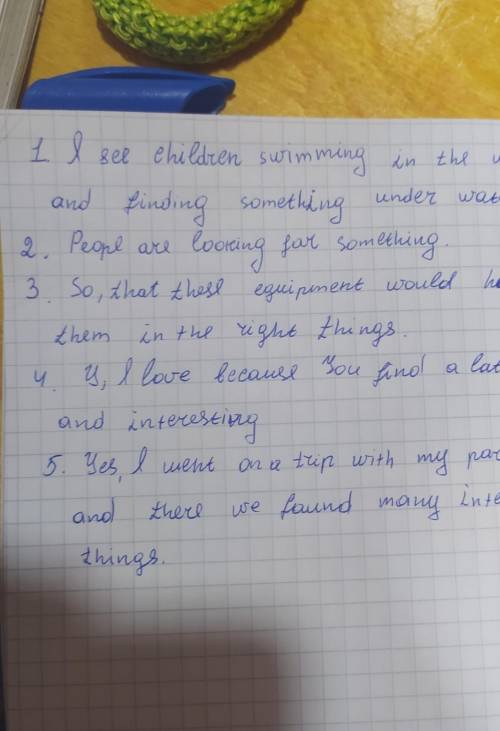 1. I see children swimming in the
and finding something under
2. Peopl are looking for something.
3. So, that these equipment would
them in the right things.
4. Y, I love because You find a lat
and interesting
5. Yes, I went on a trip with my
and there we found many
things.